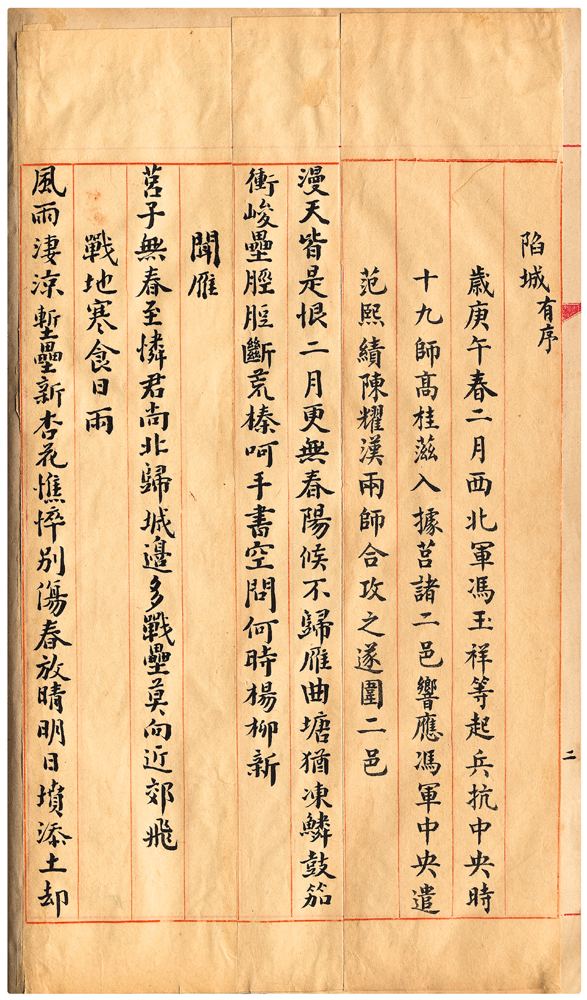 陷城有序
歲庚午春二月西北軍馮玉祥等起兵抗中央時
十九師高桂滋入據莒諸二邑響應馮軍中央遣
范熙績陳耀漢兩師合攻之遂圍二邑
漫天皆是恨二月更無春陽候不歸雁曲塘猶凍鱗鼓笳
衝峻壘脛脰斷荒榛呵手書空問何時楊柳新
聞雁
莒子無春至憐君尚北歸城邊多戰壘莫向近郊飛
戰地寒食日雨
風雨淒涼塹壘新杏花憔悴別傷春放晴明日墳添土却
二